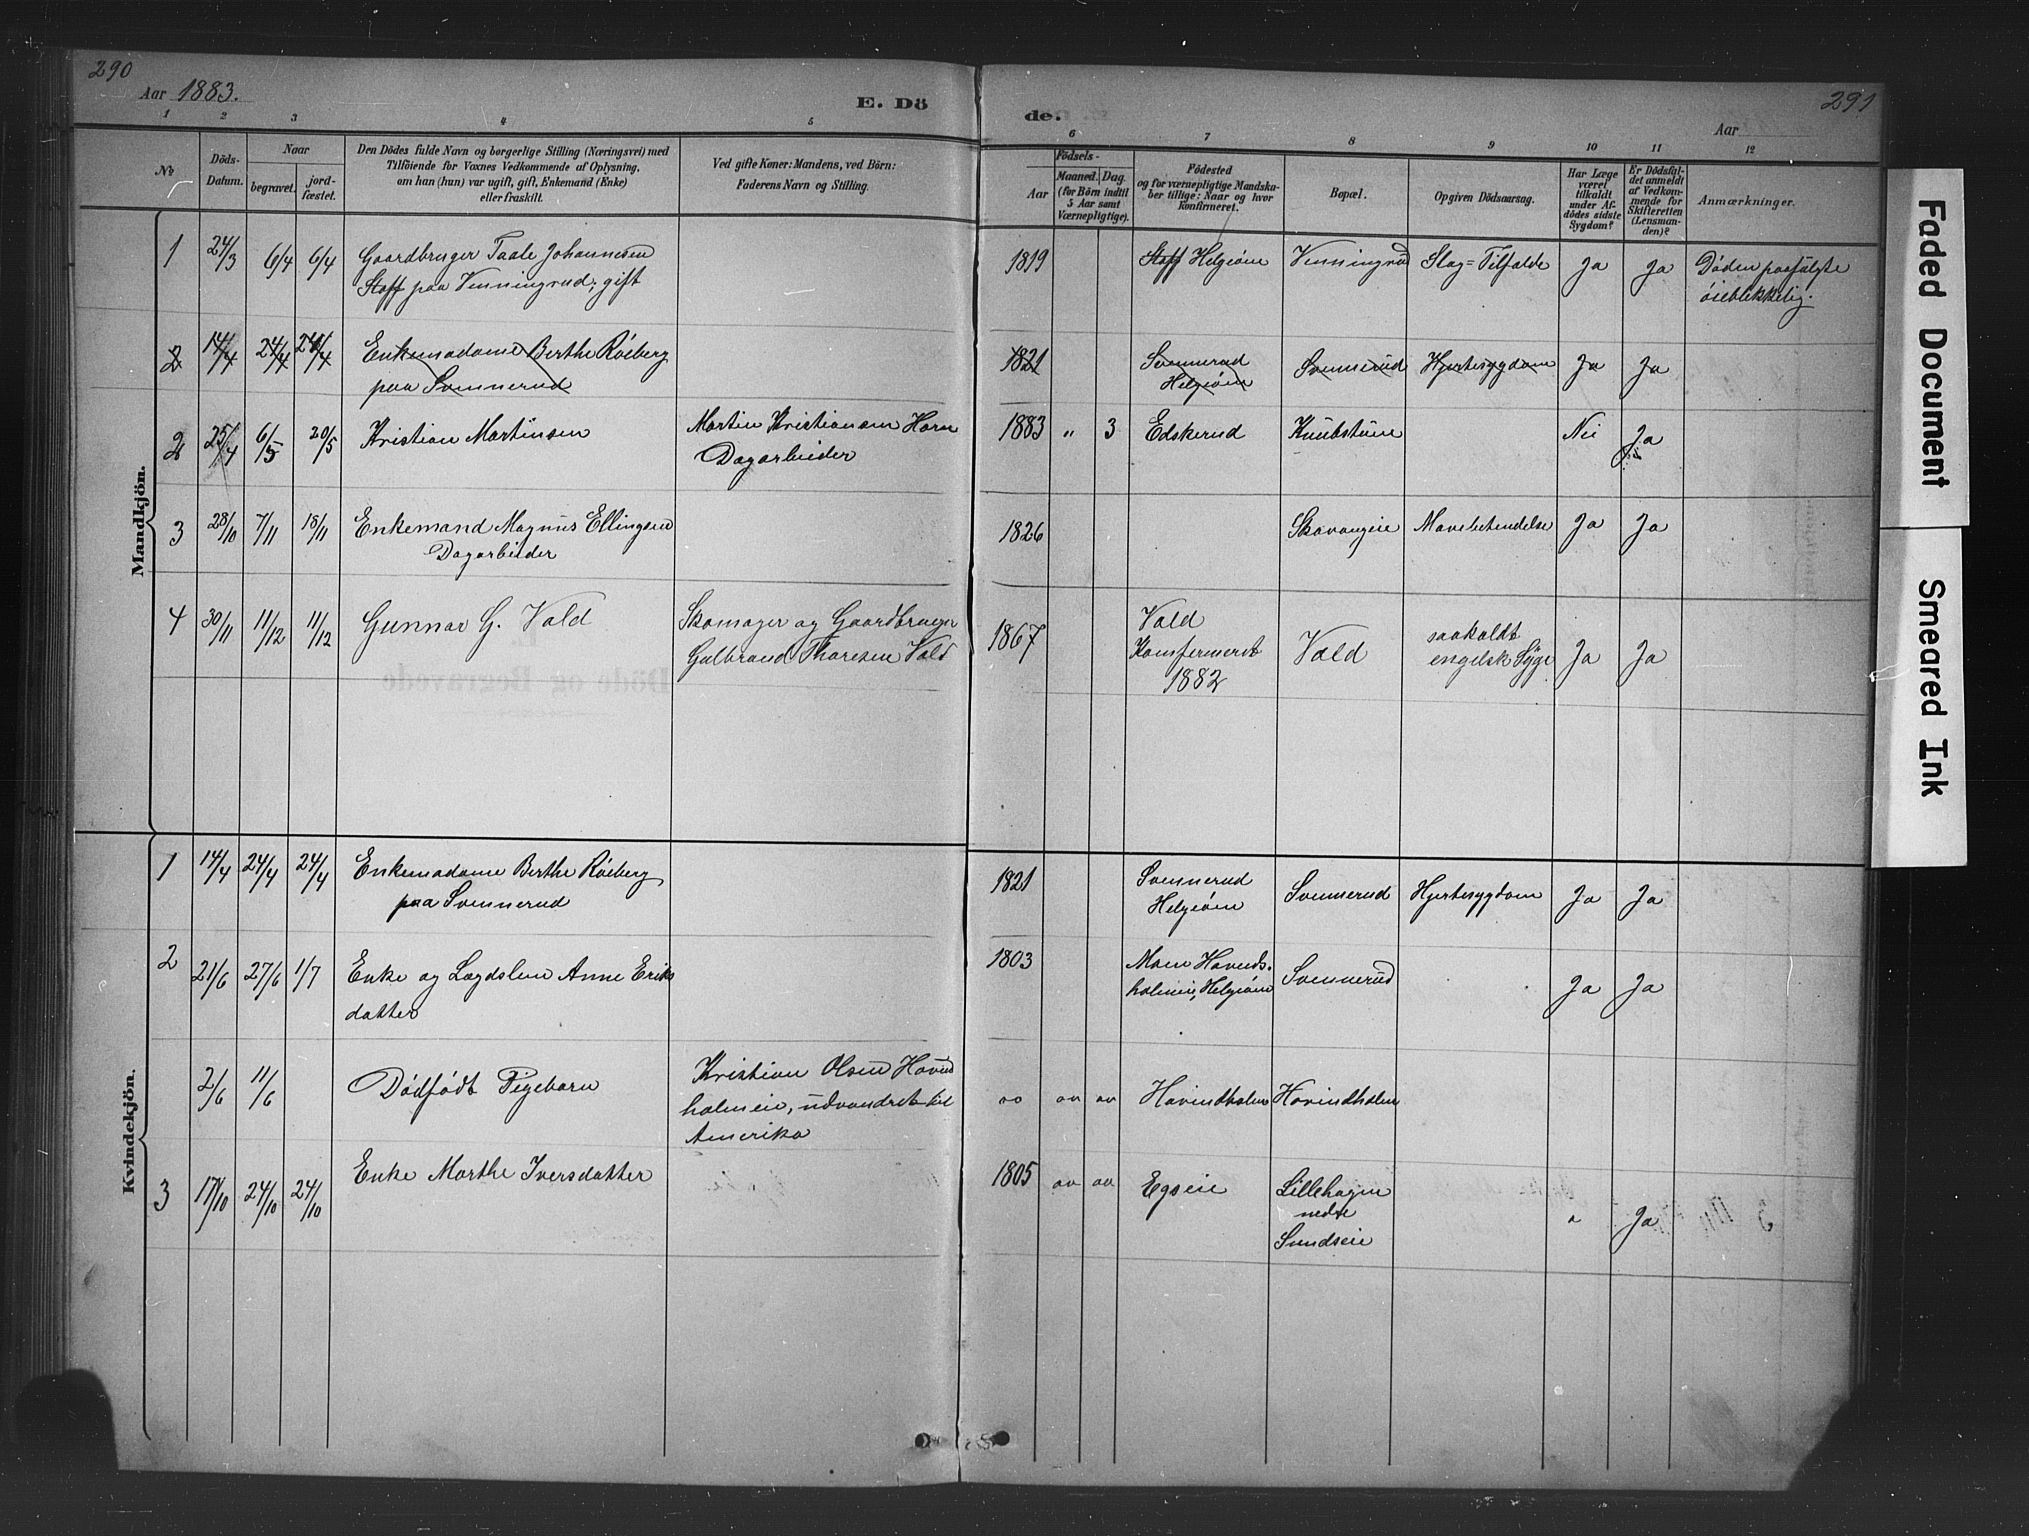 290
Aar 1883.
E. Dö
de.
291
Aar
1 2 3 4 5 6 7 8 9 10 11 12
No
Döds-Datum.
Naar
begravet.
jord-fæstet.
Den Dödes fulde Navn og borgerlige Stilling (Næringsvei) med
Tilföiende for Voxnes Vedkommende af Oplysning,
om han (hun) var ugift, gift, Enkemand (Enke)
eller fraskilt.
Ved gifte Koner: Mandens, ved Börn:
Faderens Navn og Stilling.
Födsels-
Aar
Maaned. Dag.
(for Börn indtil
5 Aar samt
Værnepligtige).
Födested
og for værnepligtige Mandska-
ber tillige: Naar og hvor
konfirmeret.
Bopæl.
Opgiven Dödsaarsag.
Har Læge
været
tilkaldt
under Af-
dödes sidste
Sygdom?
Er Dödsfal-
det anmeldt
af Vedkom-
mende for
Skifteretten
(Lensman-
den)?
Anmærkninger.
Mandkjön.
1 24/3 6/4 6/4 Gaardbruger Taale Johannesen 1819 Stoff Helgeøen Venningrud Slag=Tilfælde Ja Ja Døden paafulgte
Stoff paa Venningrud; gift øieblikkelig.
2 14/4 24/4 24/4 Enkemadame Berthe Røeberg 1821 Svennerud Svennerud Hjertesygdom Ja Ja
paa Svennerud Helgeøen
2 25/4 6/5 20/5 Kristian Martinsen Martin Kristiansen Horn 1883 " 3 Edskerud Knubstuen Nei Ja
Dagarbeider
3 28/10 7/11 18/11 Enkemand Magnus Ellingsen 1826 Skavangeie Mavebetendelse Ja Ja
Dagarbeider
4 30/11 11/12 11/12 Gunnar G. Vald Skomager og Gaardbruger 1867 Vald Vald saakaldt Ja Ja
Gulbrand Thoresen Vald Konfermeret engelsk Syge
1882
Döde og Begravede
Kvindekjön.
1 14/4 24/4 24/4 Enkemadame Berthe Røeberg 1821 Svennerud Svennerud Hjertesygdom Ja Ja
paa Svennerud Helgeøen
2 21/6 27/6 1/7 Enke og Lægdslem Anne Eriks 1803 Moen Hovinds- Svennerud Ja Ja
datter holmeie, Helgeøen
2/6 11/6 Dødfødt Pigebarn Kristian Olsen Hovind " " " Hovindholm Hovindholm
holmeie, udvandret til
Amerika
3 17/10 24/10 24/10 Enke Marthe Iversdatter 1805 " " Egseie Lillehagen " Ja
nedre
Sundseie
Faded Document
Smeared Ink